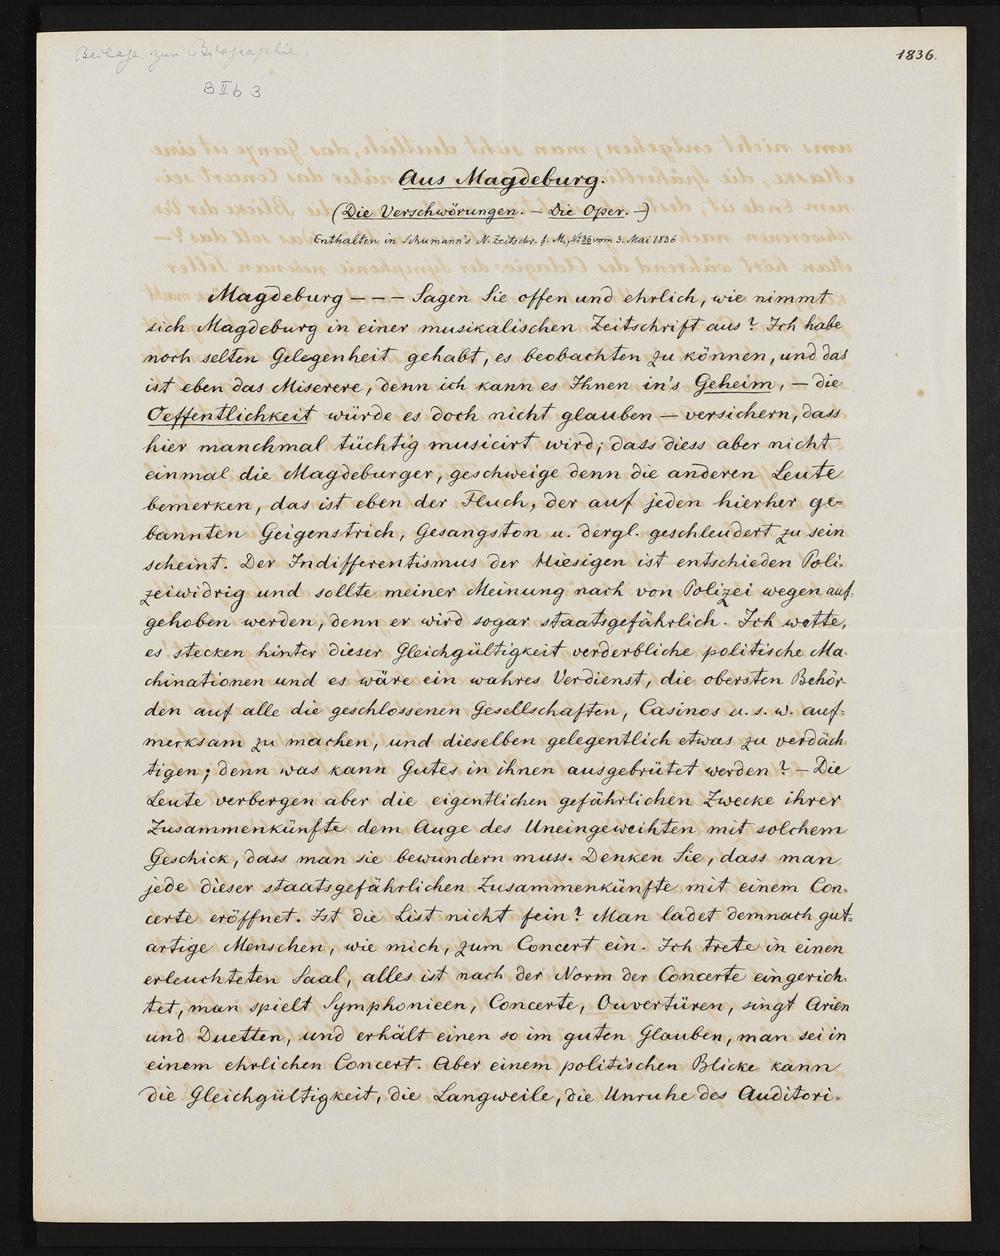 Beilage zur Biographie.
1836.
B II b 3
Aus Magdeburg.
(Die Verschwörungen. – Die Oper. –)
Enthalten in Schumann's N. Zeitschr. f. M., No 36 vom 3. Mai 1836
Magdeburg – – – Sagen Sie offen und ehrlich, wie nimmt
sich Magdeburg in einer musikalischen Zeitschrift aus? Ich habe
noch selten Gelegenheit gehabt, es beobachten zu können, und das
ist eben das Miserere, denn ich kann es Ihnen in's Geheim, – die
Oeffentlichkeit würde es doch nicht glauben – versichern, dass
hier manchmal tüchtig musicirt wird; dass diess aber nicht
einmal die Magdeburger, geschweige denn die anderen Leute
bemerken, das ist eben der Fluch, der auf jeden hierher ge-
bannten Geigenstrich, Gesangston u. dergl. geschleudert zu sein
scheint. Der Indifferentismus der Hiesigen ist entschieden Poli-
zeiwidrig und sollte meiner Meinung nach von Polizei wegen auf-
gehoben werden, denn er wird sogar staatsgefährlich. Ich wette,
es stecken hinter dieser Gleichgültigkeit verderbliche politische Ma-
chinationen und es wäre ein wahres Verdienst, die obersten Behör-
den auf alle die geschlossenen Gesellschaften, Casinos u. s. w. auf-
merksam zu machen, und dieselben gelegentlich etwas zu verdäch-
tigen; denn was kann Gutes in ihnen ausgebrütet werden? – Die
Leute verbergen aber die eigentlichen gefährlichen Zwecke ihrer
Zusammenkünfte dem Auge des Uneingeweihten mit solchem
Geschick, dass man sie bewundern muss. Denken Sie, dass man
jede dieser staatsgefährlichen Zusammenkünfte mit einem Con-
certe eröffnet. Ist die List nicht fein? Man ladet demnach gut-
artige Menschen, wie mich, zum Concert ein. Ich trete in einen
erleuchteten Saal, alles ist nach der Norm der Concerte eingerich-
tet, man spielt Symphonieen, Concerte, Ouvertüren, singt Arien
und Duetten, und erhält einen so im guten Glauben, man sei in
einem ehrlichen Concert. Aber einem politischen Blicke kann
die Gleichgültigkeit, die Langweile, die Unruhe des Auditori-